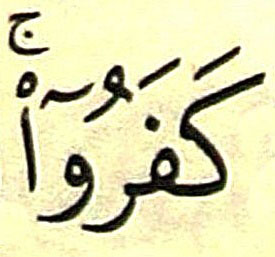 كَفَرُوٓا۟ۚ